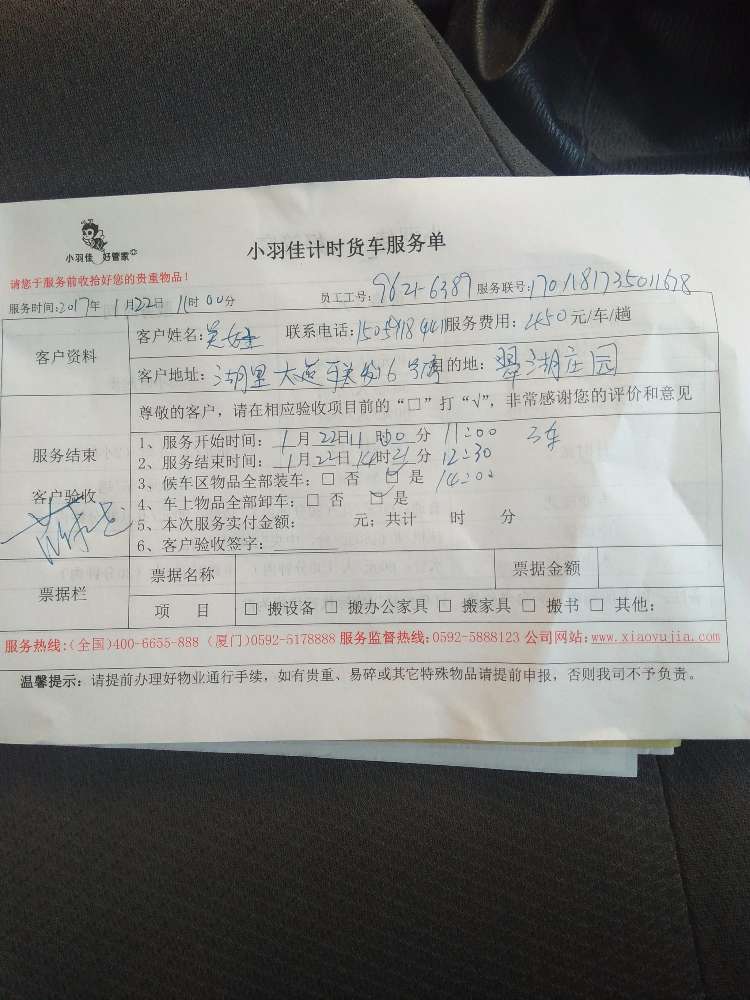 小羽佳 好管家
小羽佳计时货车服务单
请您于服务前收拾好您的贵重物品!
服务时间:2017年 1月22日 11时00分 员工工号: 962+6389 服务联号:1701181735011678
客户资料
客户姓名:吴 联系电话: 服务费用: 450元/车/趟
客户地址: 湖里大道联发6号 目的地: 翠湖庄园
服务结束
客户验收
尊敬的客户,请在相应验收项目前的“□”打“√”,非常感谢您的评价和意见
1、服务开始时间: 1月22日11时00分 11:00 3车
2、服务结束时间: 1月22日14时21分 12:30
3、候车区物品全部装车:□ 否 ☑ 是 14:02
4、车上物品全部卸车:□ 否 ☑ 是
5、本次服务实付金额: 元;共计 时 分
6、客户验收签字:
票据栏
票据名称 票据金额
项 目 □ 搬设备 □ 搬办公家具 □ 搬家具 □ 搬书 □ 其他:
服务热线:(全国)400-6655-888(厦门)0592-5178888 服务监督热线:0592-5888123 公司网站:www.xiaoyujia.com
温馨提示:请提前办理好物业通行手续,如有贵重、易碎或其它特殊物品请提前申报,否则我司不予负责。